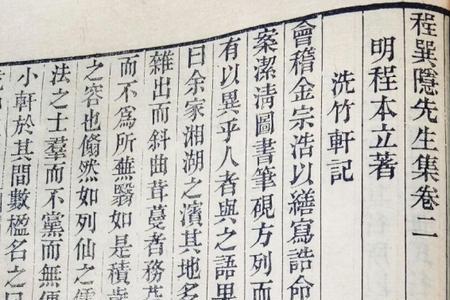 程巽隱先生集卷二
明程本立著
洗竹軒記
會稽金宗浩以繕寫誥命
案潔清圖書筆硯方列而
有以異乎人者與之語果
曰余家湘湖之濱其地名
雜出而斜曲茸蔓者務芟
而不為所蕪翳如是積歲
之容也翛然如列仙之儒
法之士羣而不黨而無便
小軒於其間數楹名之曰